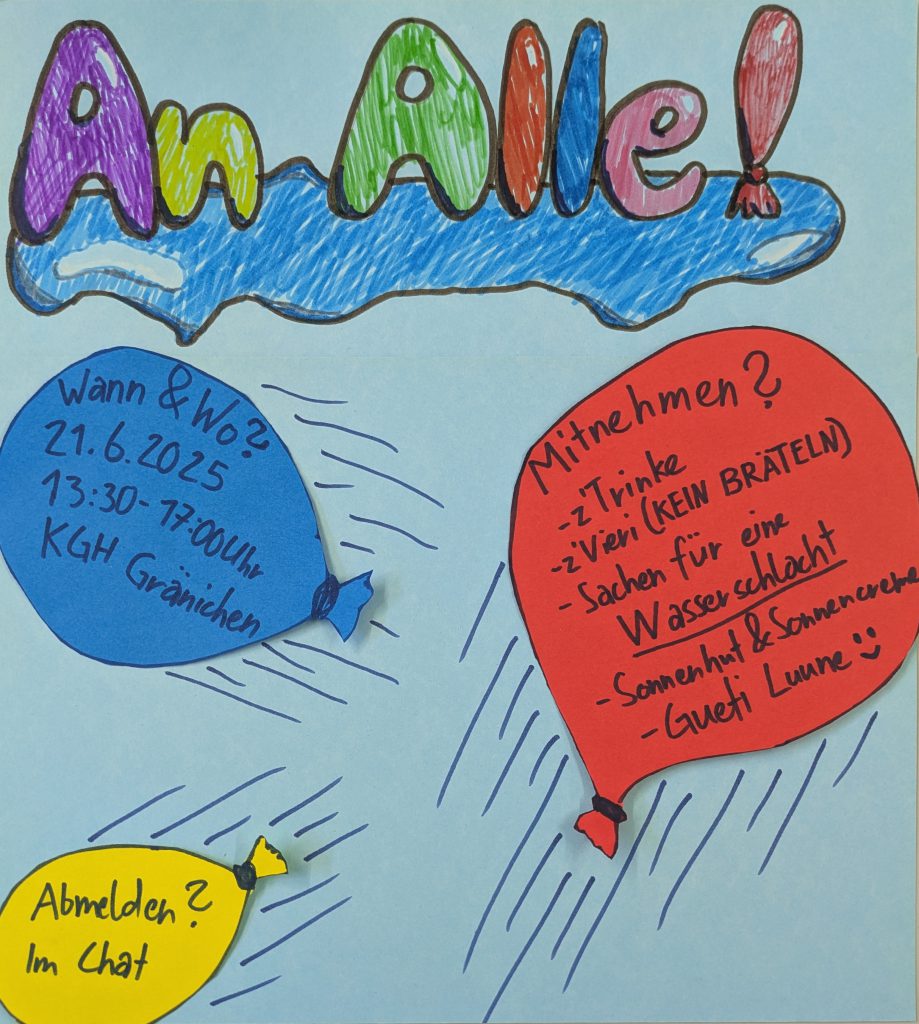 An Alle!
Wann & Wo?
21.6.2025
13:30-17:00Uhr
KGH Gränichen
Mitnehmen?
-z'Trinke
-z'Vieri (KEIN BRÄTELN)
- Sachen für eine
Wasserschlacht
- Sonnenhut & Sonnencreme
- Gueti Luune :)
Abmelden?
Im Chat